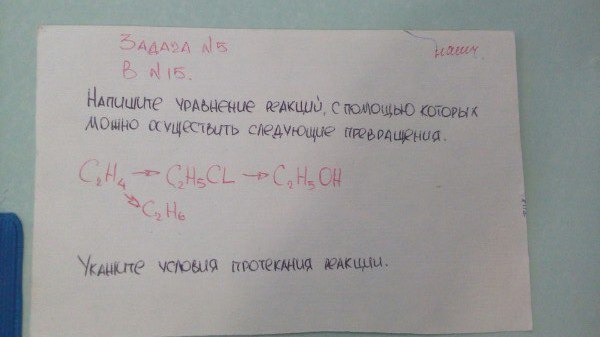 Задача №5
В №15.
Напишите уравнение реакций, с помощью которых
можно осуществить следующие превращения.
C₂H₄ → C₂H₅CL → C₂H₅OH
↘ C₂H₆
Укажите условия протекания реакции.